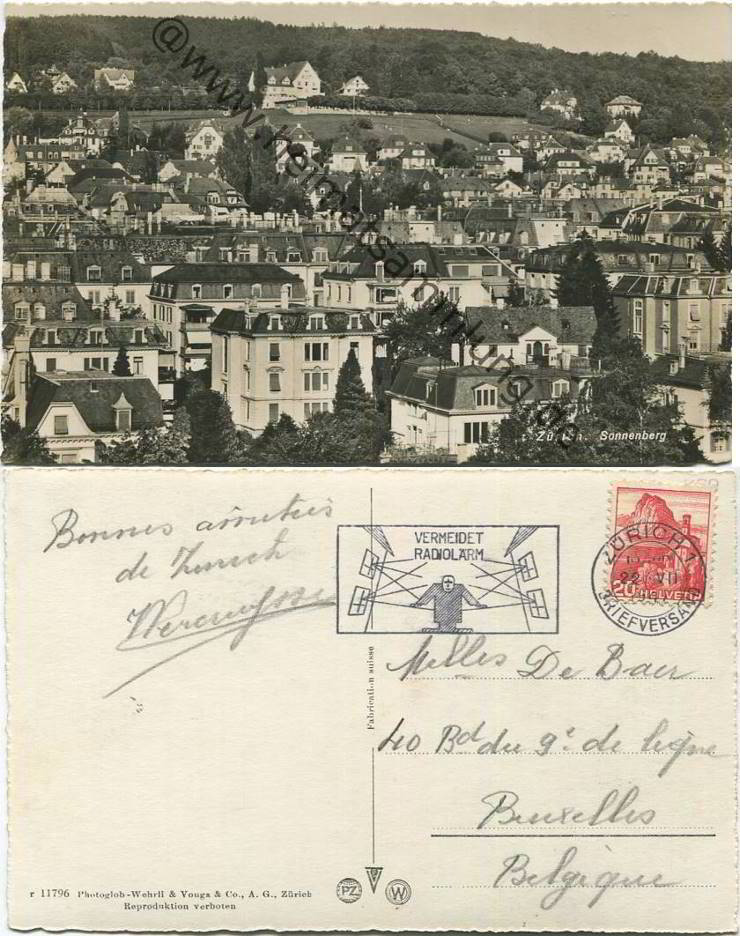 @www.heimatsammlung.de
Zürich. Sonnenberg
Bonnes amitiés
de Zurich
VERMEIDET
RADIOLÄRM
ZÜRICH 1
22 VII
BRIEFVERSAND
20 HELVETIA
Fabrication suisse
Melles De Baer
40 Bd du 9e de ligne
Bruxelles
Belgique
r 11796 Photoglob-Wehrli & Vouga & Co., A. G., Zürich
Reproduktion verboten
PZ W